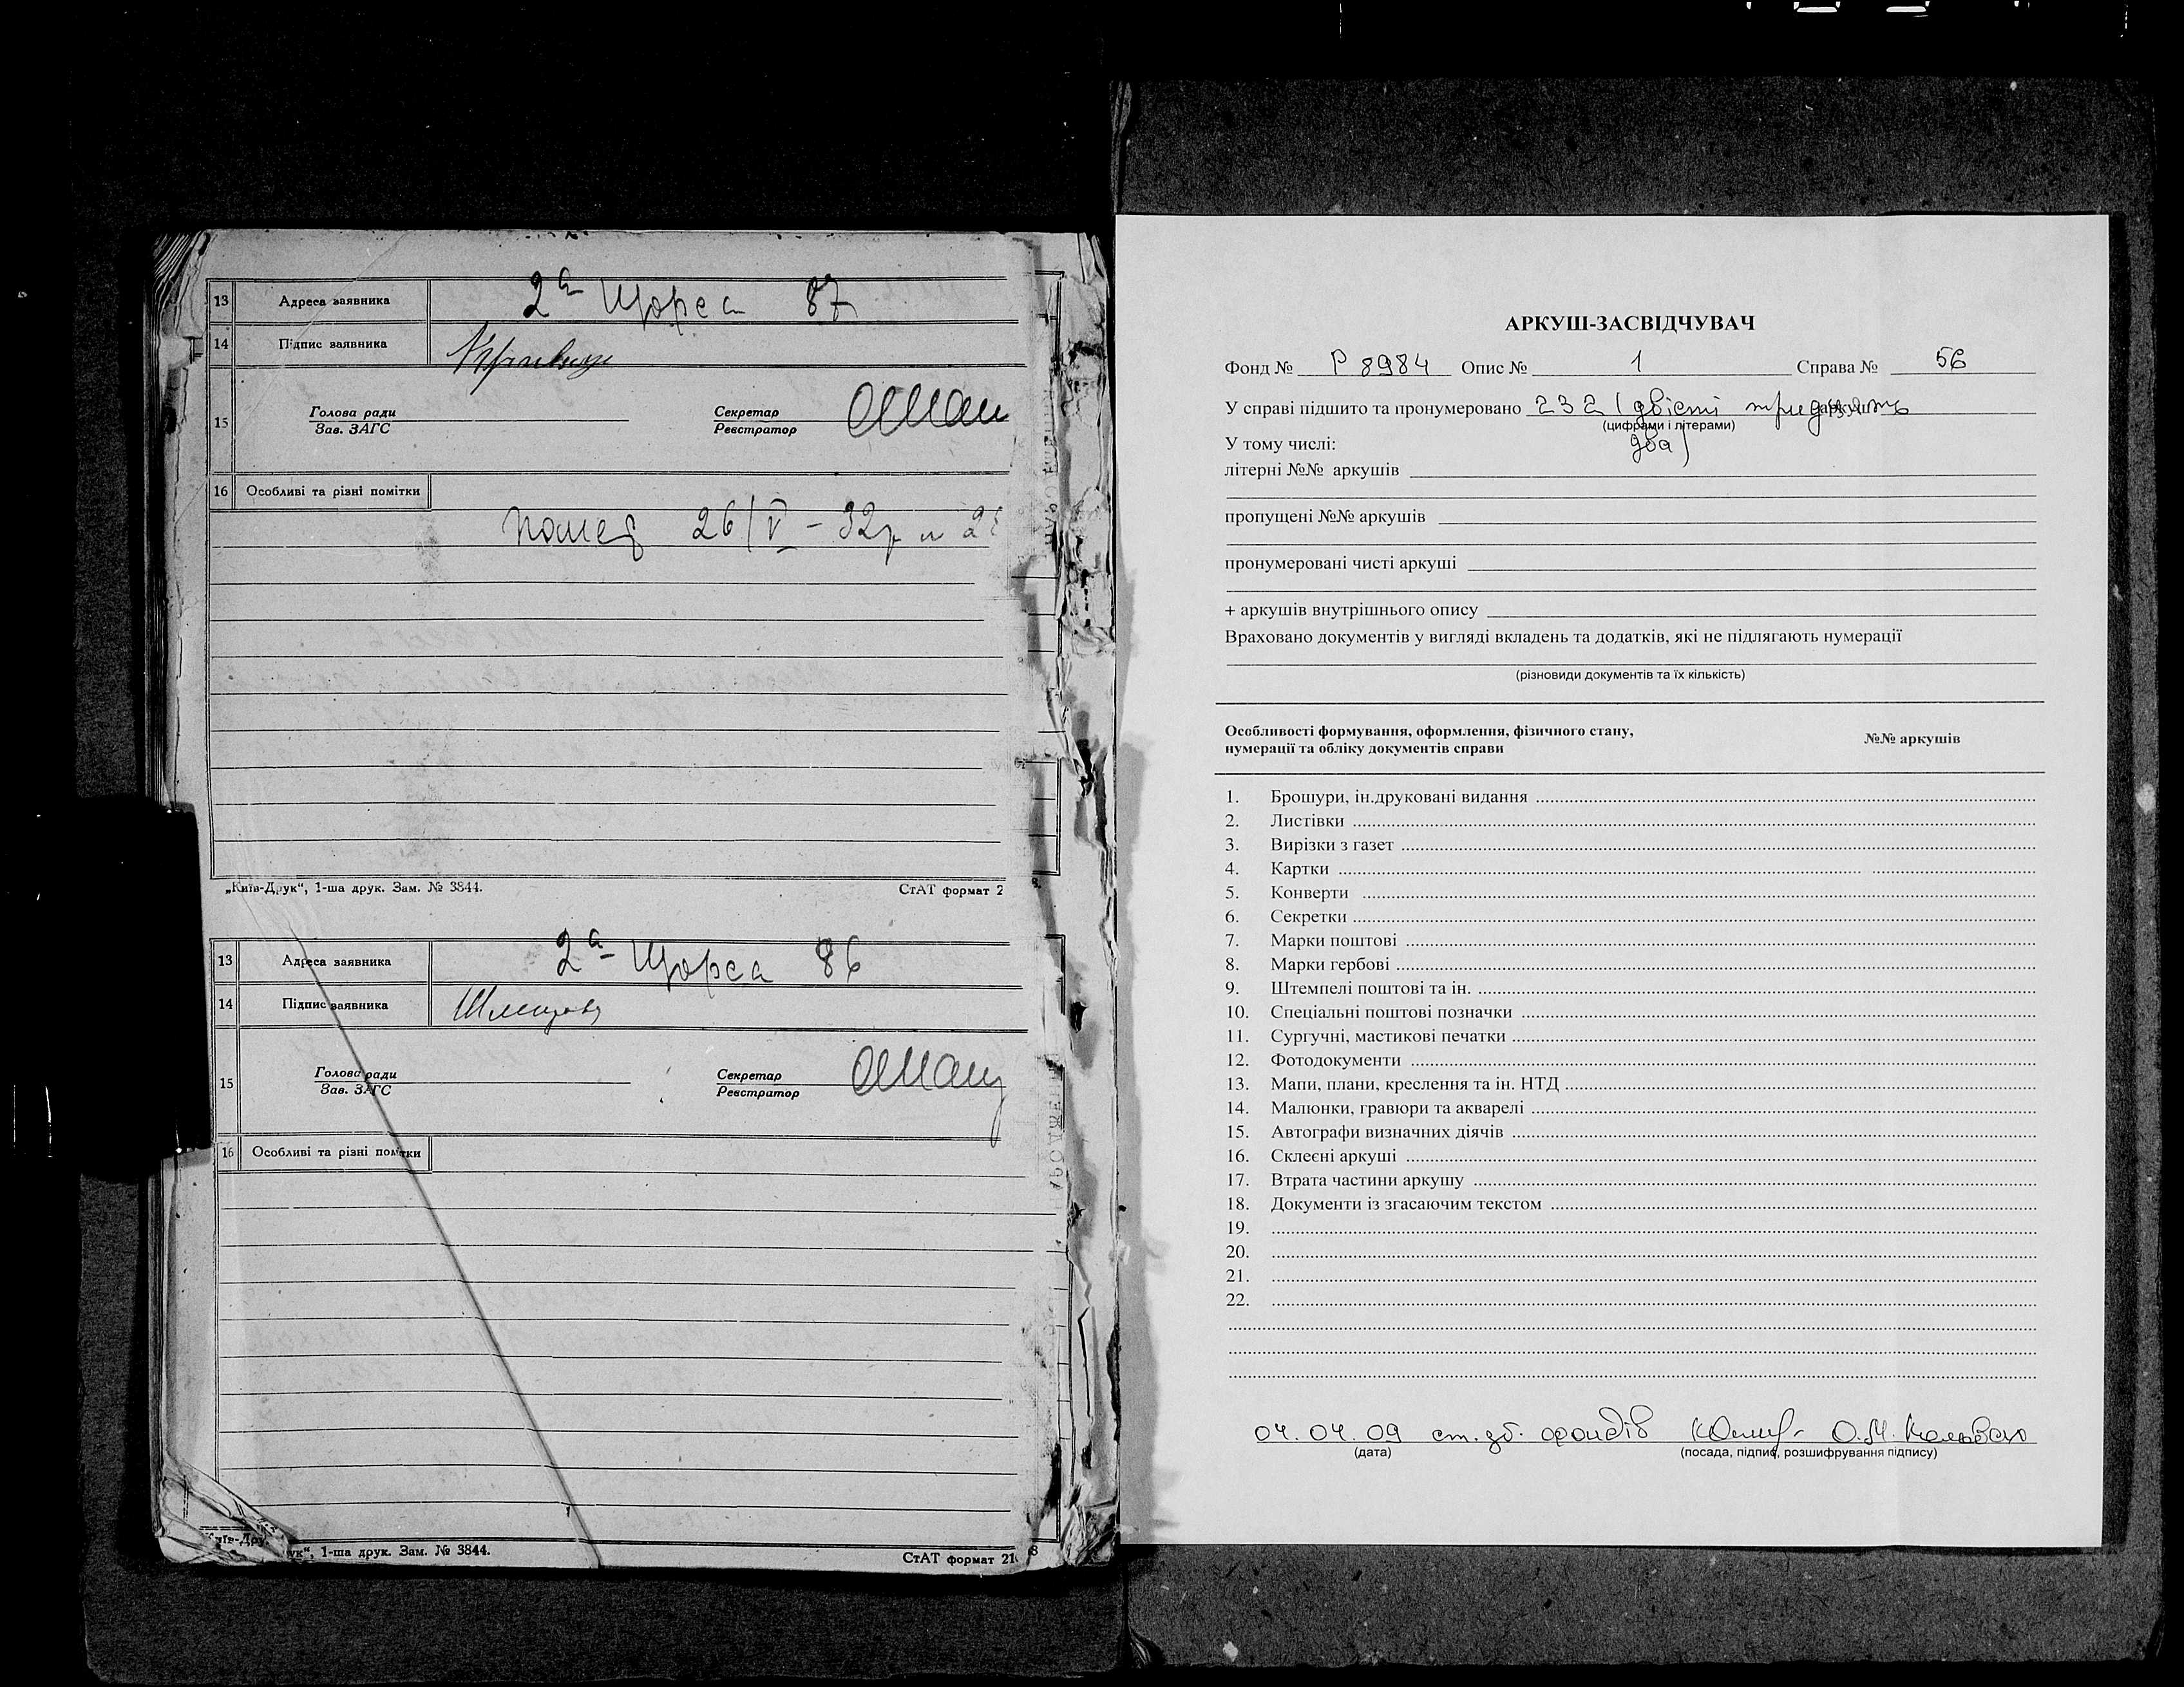 13 Адреса заявника 2а Щорса 87
14 Підпис заявника
15 Голова ради Секретар
Зав. ЗАГС Реєстратор
16 Особливі та різні помітки
26/V - 32р
„Київ-Друк“, 1-ша друк. Зам. № 3844. СтАТ формат 2
13 Адреса заявника 2а Щорса 86
14 Підпис заявника
15 Голова ради Секретар
Зав. ЗАГС Реєстратор
16 Особливі та різні помітки
1-ша друк. Зам. № 3844. СтАТ формат 21
АРКУШ-ЗАСВІДЧУВАЧ
Фонд № Р 8984 Опис № 1 Справа № 56
У справі підшито та пронумеровано 232 (двісті тридцять аркушів
(цифрами і літерами)
У тому числі: два)
літерні №№ аркушів
пропущені №№ аркушів
пронумеровані чисті аркуші
+ аркушів внутрішнього опису
Враховано документів у вигляді вкладень та додатків, які не підлягають нумерації
(різновиди документів та їх кількість)
Особливості формування, оформлення, фізичного стану,
нумерації та обліку документів справи №№ аркушів
1. Брошури, ін.друковані видання
2. Листівки
3. Вирізки з газет
4. Картки
5. Конверти
6. Секретки
7. Марки поштові
8. Марки гербові
9. Штемпелі поштові та ін.
10. Спеціальні поштові позначки
11. Сургучні, мастикові печатки
12. Фотодокументи
13. Мапи, плани, креслення та ін. НТД
14. Малюнки, гравюри та акварелі
15. Автографи визначних діячів
16. Склеєні аркуші
17. Втрата частини аркушу
18. Документи із згасаючим текстом
19.
20.
21.
22.
04.04.09 ст. зб. фондів О.М.
(дата) (посада, підпис, розшифрування підпису)